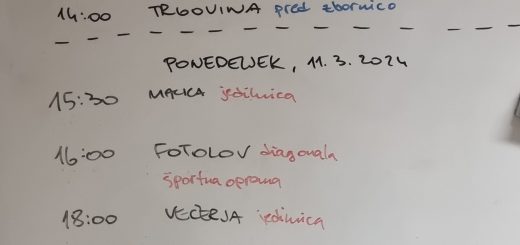 14:00 TRGOVINA pred zbornico
PONEDELJEK, 11.3.2024
15:30 MALICA jedilnica
16:00 FOTOLOV diagonala
športna oprema
18:00 VEČERJA jedilnica